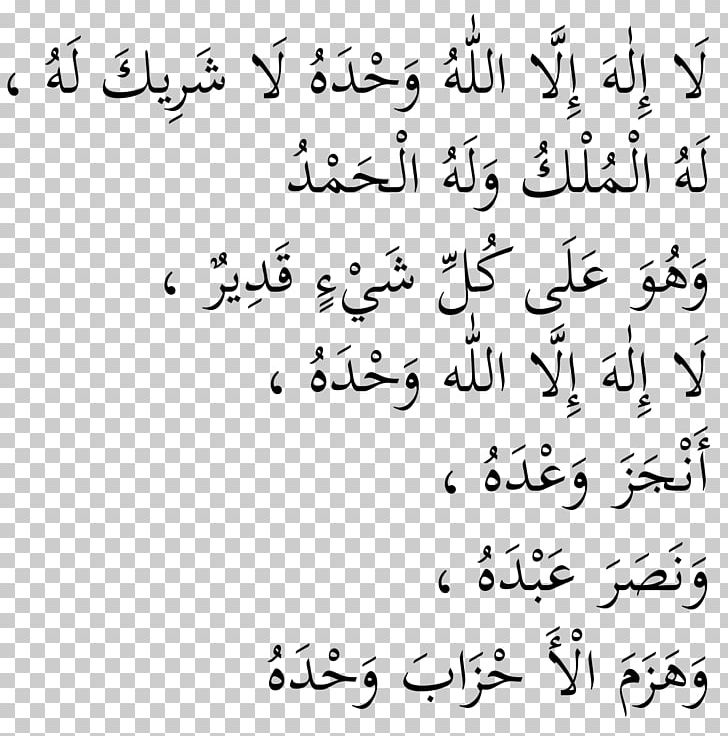 لَا إِلٰهَ إِلَّا اللّٰهُ وَحْدَهُ لَا شَرِيكَ لَهُ ،
لَهُ الْمُلْكُ وَلَهُ الْحَمْدُ
وَهُوَ عَلَى كُلِّ شَيْءٍ قَدِيرٌ ،
لَا إِلٰهَ إِلَّا اللّٰه وَحْدَهُ ،
أَنْجَزَ وَعْدَهُ ،
وَنَصَرَ عَبْدَهُ ،
وَهَزَمَ الْأَ حْزَابَ وَحْدَهُ